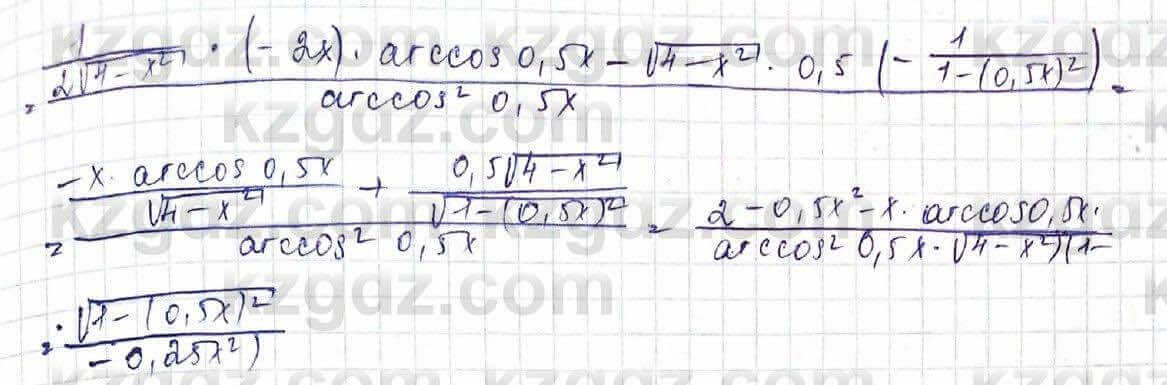 = (1/(2√(4-x²)) · (-2x) · arccos 0,5x - √(4-x²) · 0,5 (-1/(1-(0,5x)²))) / (arccos² 0,5x) =
= ((-x · arccos 0,5x)/√(4-x²) + (0,5√(4-x²))/√(1-(0,5x)²)) / (arccos² 0,5x) = (2-0,5x²-x · arccos0,5x·) / (arccos² 0,5x · √(4-x²)(1-
= (·√(1-(0,5x)²)) / (-0,25x²)
kzgdz.com